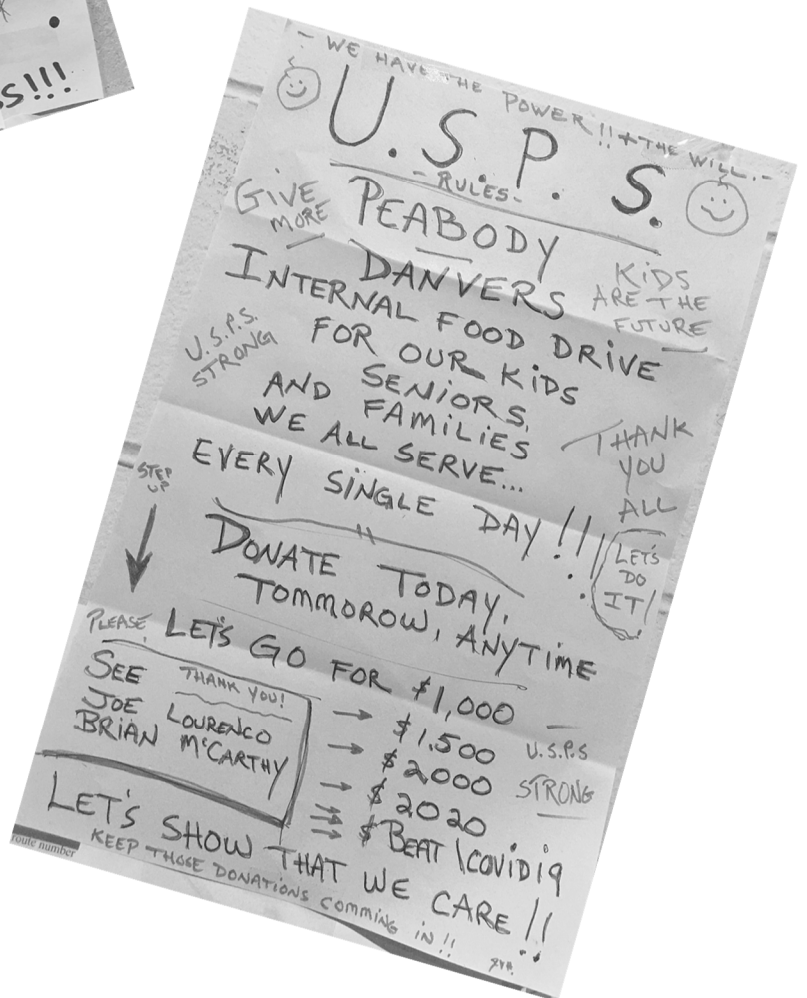 S!!!
- WE HAVE THE POWER!! + THE WILL. -
U.S.P.S.
- RULES -
GIVE
MORE
PEABODY
DANVERS
KiDS
ARE THE
FUTURE
INTERNAL FOOD DRIVE
FOR OUR KiDS
SENiORS,
AND FAMiLiES
WE ALL SERVE...
U.S.P.S.
STRONG
THANK
YOU
ALL
EVERY SiNGLE DAY!!!
STEP
UP
LET'S
DO
IT!
DONATE TODAY,
TOMMOROW, ANYTIME
PLEASE
LET'S GO FOR $1,000
SEE
JOE LOURENCO
BRiAN McCARTHY
THANK YOU!
$1,500
$2000
$2020
$BEAT COViD19
U.S.P.S
STRONG
LET'S SHOW THAT WE CARE!!
KEEP THOSE DONATiONS COMMiNG iN!!
route number